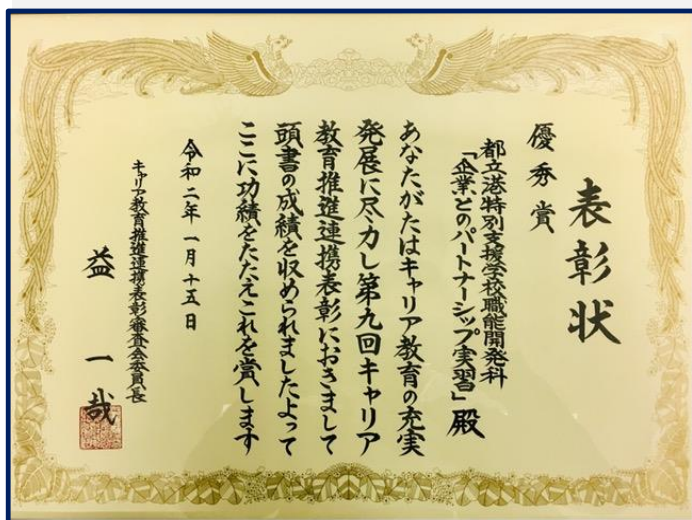 表彰状
優秀賞
都立港特別支援学校職能開発科
「企業とのパートナーシップ実習」殿
あなたがたはキャリア教育の充実
発展に尽力し第九回キャリア
教育推進連携表彰におきまして
頭書の成績を収められましたよって
ここに功績をたたえこれを賞します
令和二年一月十五日
キャリア教育推進連携表彰審査会委員長
益一哉